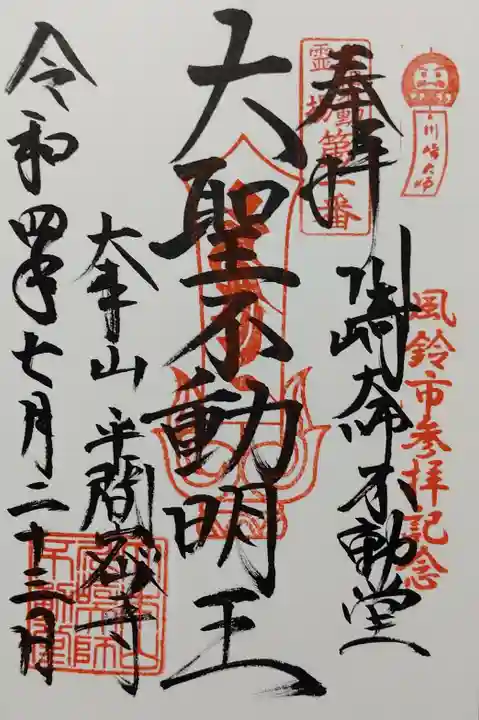 川崎大師
風鈴市参拝記念
奉拝
川崎大師不動堂
第一番
大聖不動明王
大本山平間寺
令和四年七月二十三日